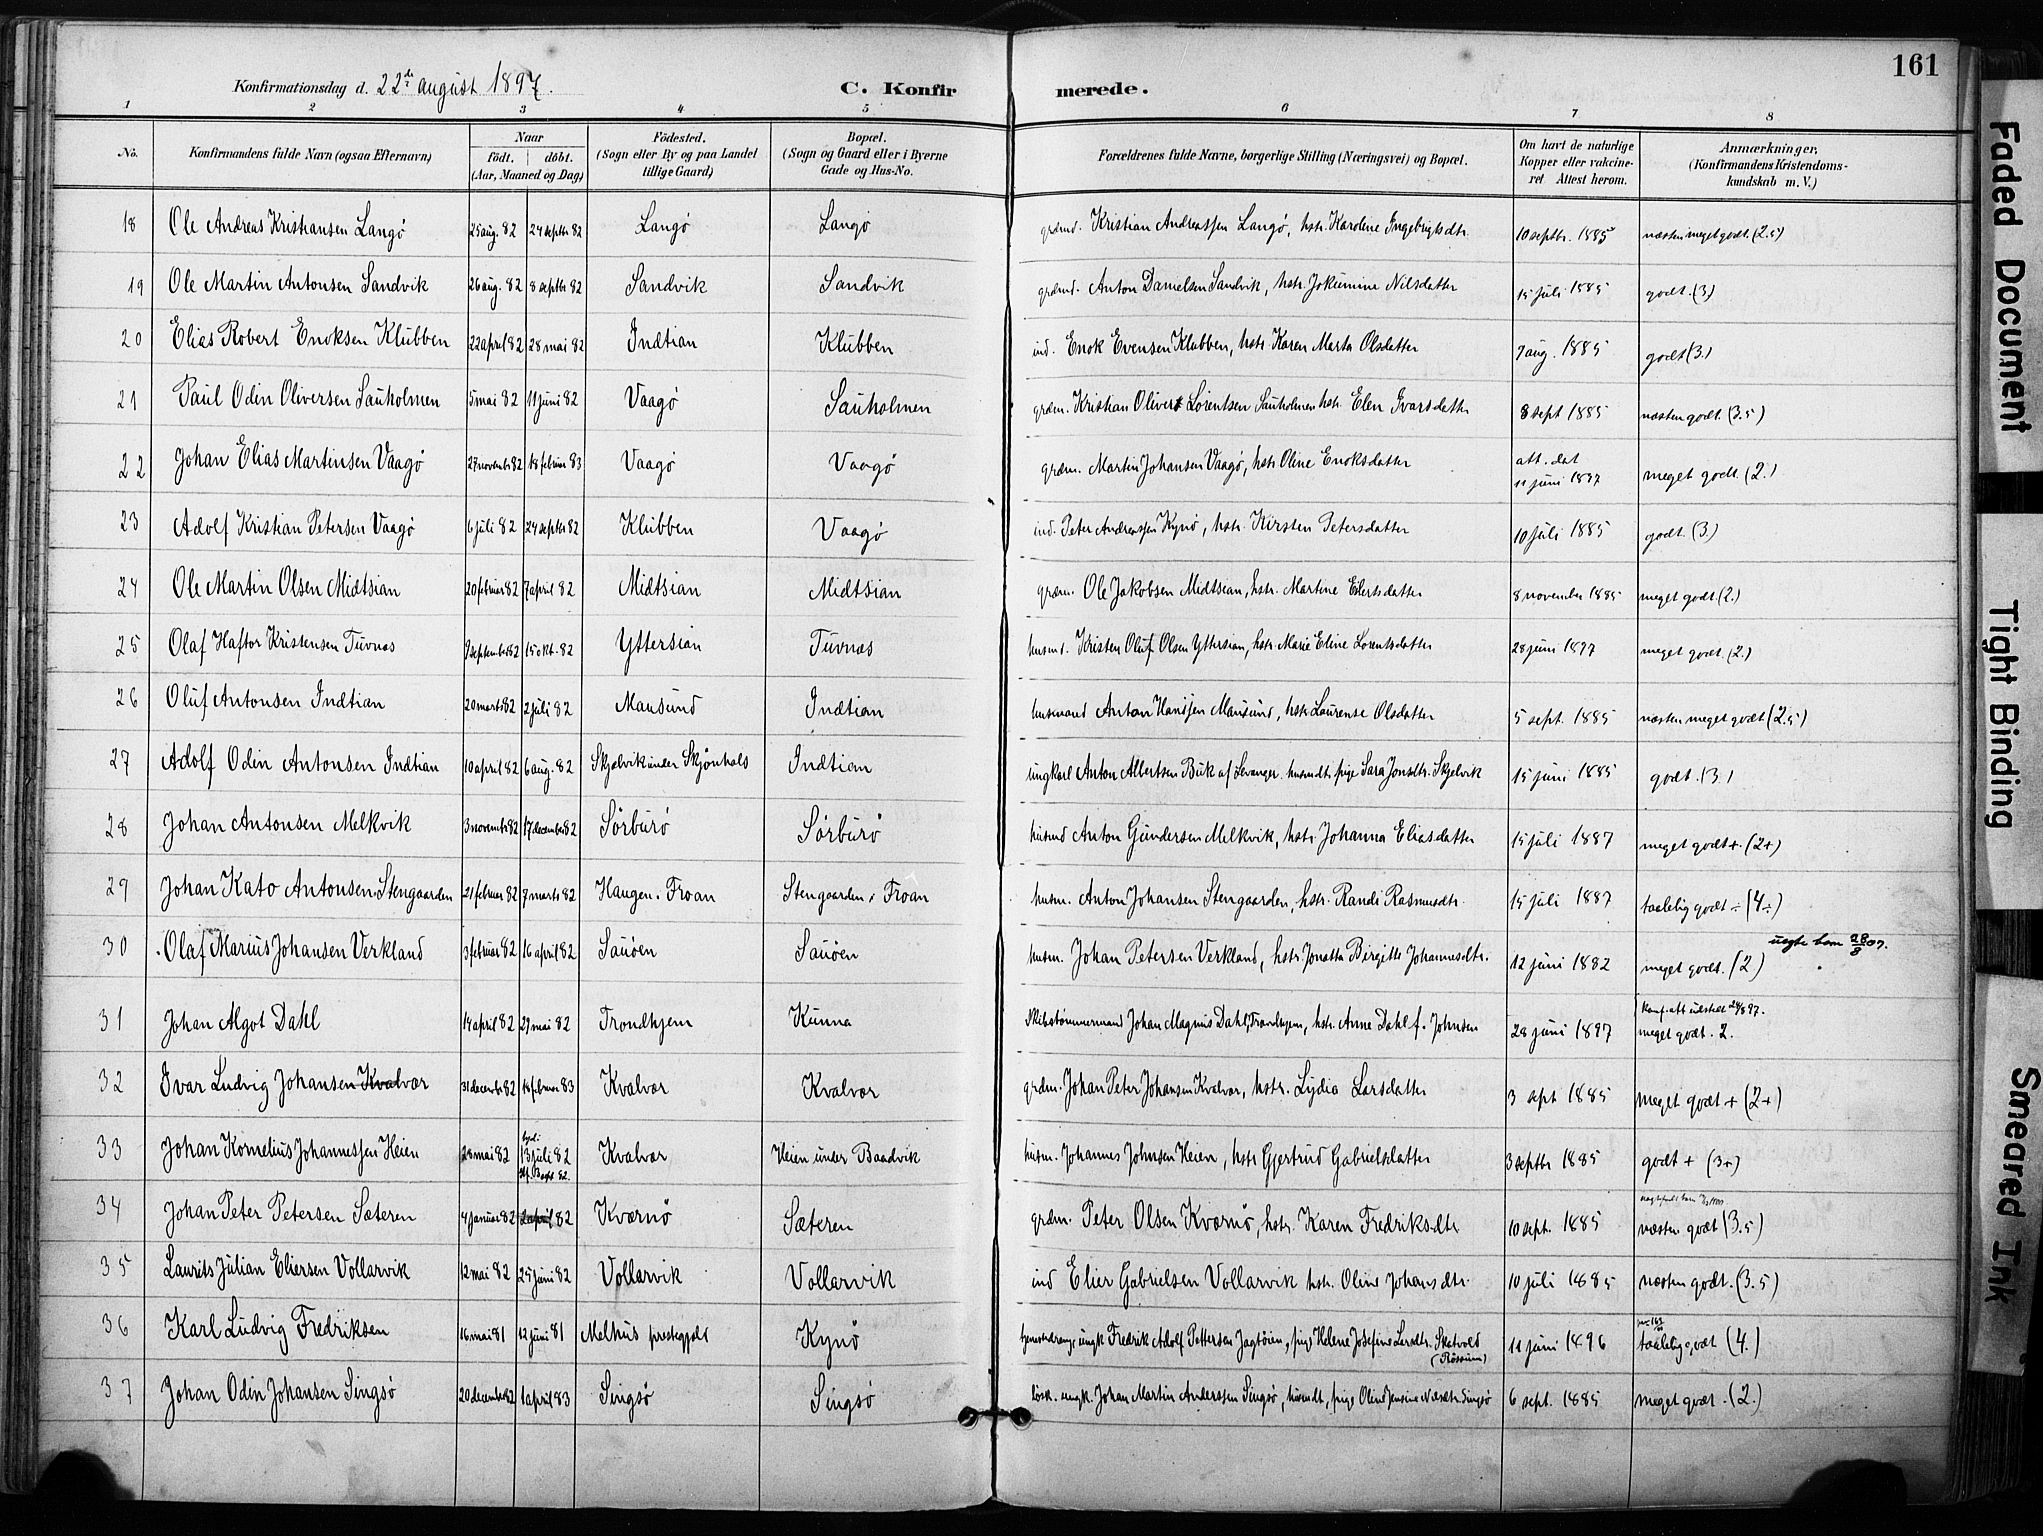 161
Konfirmationsdag d. 22de august 1897.
C. Konfirmerede.
1 2 3 4 5 6 7 8
No.
Konfirmandens fulde Navn (ogsaa Efternavn)
Naar
födt. | döbt.
(Aar, Maaned og Dag)
Födested.
(Sogn eller By og paa Landet
tillige Gaard)
Bopæl.
(Sogn og Gaard eller i Byerne
Gade og Hus-No.
Forældrenes fulde Navne, borgerlige Stilling (Næringsvei) og Bopæl.
Om havt de naturlige
Kopper eller vakcine-
ret Attest herom.
Anmærkninger,
(Konfirmandens Kristendoms-
kundskab m. V.)
18 Ole Andreas Kristiansen Langö 25 aug. 82 24 septbr 82 Langö Langö grdmd. Kristian Andreassen Langö, hstr. Karoline Ingebrigtsdtr. 10 septbr. 1885 næsten meget godt. (2.5)
19 Ole Martin Antonsen Sandvik 26 aug. 82 8 septbr 82 Sandvik Sandvik grdmd. Anton Danielsen Sandvik, hstr. Jokumine Nilsdatter 15 juli 1885 godt. (3)
20 Elias Robert Enoksen Klubben 22 april 82 28 mai 82 Indtian Klubben ind. Enok Evensen Klubben, hstr. Karen Marta Olsdatter 7 aug. 1885 godt (3.)
21 Paul Odin Oliversen Sauholmen 5 mai 82 11 juni 82 Vaagö Sauholmen grdm. Kristian Oliver Lorentsen Sauholmen hstr. Elen Ivarsdatter 8 sept 1885 næsten godt. (3.5)
22 Johan Elias Martinsen Vaagö 27 novembr 82 18 februar 83 Vaagö Vaagö grdm. Martin Johansen Vaagö, hstr Oline Enoksdatter att. dat
11 juni 1897 meget godt. (2.)
23 Adolf Kristian Petersen Vaagö 6 juli 82 24 septbr 82 Klubben Vaagö ind. Peter Andreassen Kynö, hstr. Kirsten Petersdatter 10 juli 1885 godt. (3.)
24 Ole Martin Olsen Midtsian 20 februar 82 7 april 82 Midtsian Midtsian grdm. Ole Jakobsen Midtsian, hstr. Martine Eilertsdatter 8 november 1885 meget godt (2.)
25 Olaf Haftor Kristensen Tuvnæs 9 september 82 15 okt. 82 Yttersian Tuvnæs husmd. Kristen Oluf Olsen Yttersian, hstr. Marie Eline Lorentsdatter 28 juni 1897 meget godt. (2.)
26 Oluf Antonsen Indtian 20 marts 82 2 juli 82 Mausund Indtian husmand Anton Hanssen Mausund, hstr Laurense Olsdatter 5 sept. 1885 næsten meget godt (2.5)
27 Adolf Odin Antonsen Indtian 10 april 82 6 aug. 82 Skjelvik under Skjönhals Indtian ungkarl Anton Albertsen Buk af Levanger, pige Sara Jonsdtr. Skjelvik 15 juni 1885 godt. (3.)
28 Johan Antonsen Melkvik 3 novembr 82 17 december 82 Sörburö Sörburö husmd Anton Gundersen Melkvik, hstr. Johanna Eliasdatter 15 juli 1887 meget godt + (2+)
29 Johan Kato Antonsen Stengaarden 21 februar 82 7 marts 82 Haugen i Froan Stengaarden i Froan husm. Anton Johansen Stengaarden, hstr. Randi Rasmusdtr. 15 juli 1887 taalelig godt ÷ (4÷)
30 Olaf Marius Johansen Verkland 3 februar 82 16 april 82 Sauöen Sauöen husm. Johan Petersen Verkland, hstr. Jonetta Birgitte Johannesdtr. 12 juni 1882 meget godt. (2)
31 Johan Algot Dahl 14 april 82 29 mai 82 Trondhjem Kunna Skibstömmermand Johan Magnus Dahl, Trondhjem, hstr. Anne Dahl f. Johnsen 28 juni 1897 meget godt. 2.
32 Ivar Ludvig Johansen Kvalvær 31 decembr 82 18 februar 83 Kvalvær Kvalvær grdm. Johan Peter Johansen Kvalvær, hstr. Lydia Larsdatter 3 sept 1885 meget godt + (2+)
33 Johan Kornelius Johannessen Heien 28 mai 82 13 juli 82 Kvalvær Heien under Baadvik husm. Johannes Johnsen Heien, hstr Gjertrud Gabrielsdatter 3 septbr 1885 godt + (3+)
34 Johan Peter Petersen Sæteren 4 januar 82 2 april 82 Kværnö Sæteren grdm. Peter Olsen Kværnö, hstr. Karen Fredriksdtr 10 sept. 1885 næsten godt (3.5)
35 Laurits Julian Eliersen Vollarvik 12 mai 82 25 juni 82 Vollarvik Vollarvik ind Elier Gabrielsen Vollarvik hstr. Oline Johansdtr. 10 juli 1885 næsten godt. (3.5)
36 Karl Ludvig Fredriksen 16 mai 81 12 juni 81 Melhus prestegjeld Kynö ungk. Fredrik Adolf Pettersen Jagtöien, pige Helene Josefine Larsdtr. Skatvold 11 juni 1896 taalelig godt (4.)
37 Johan Odin Johansen Singsö 20 decembr 82 1 april 83 Singsö Singsö lösk. ungk. Johan Martin Anderssen Singsö, pige Oline Jensine Singsö 6 sept. 1885 meget godt. (2.)
Faded Document
Tight Binding
Smeared Ink